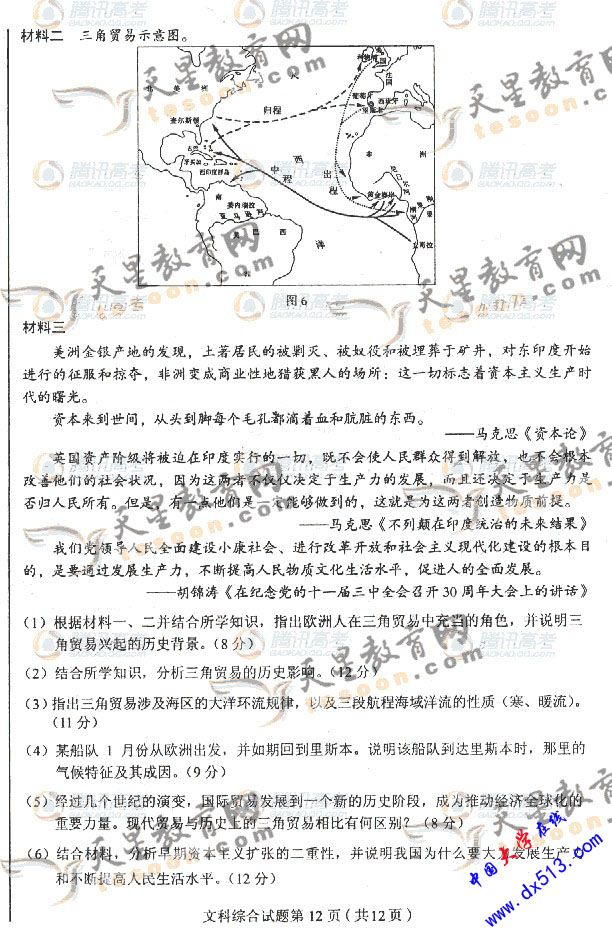 材料二 三角贸易示意图。
北 美 洲
大
归程
查尔斯顿
古巴
牙买加
西印度群岛
英国
法国
葡萄牙
西班牙
里斯本
西
中程
出程
非 洲
黄金海岸
刚果
南
委内瑞拉
亚马逊河
美 巴 西
洋
洲
罗安达
图6
材料三
美洲金银产地的发现，土著居民的被剿灭、被奴役和被埋葬于矿井，对东印度开始
进行的征服和掠夺，非洲变成商业性地猎获黑人的场所：这一切标志着资本主义生产时
代的曙光。
资本来到世间，从头到脚每个毛孔都滴着血和肮脏的东西。
——马克思《资本论》
英国资产阶级将被迫在印度实行的一切，既不会使人民群众得到解放，也不会根本
改善他们的社会状况，因为这两者不仅仅决定于生产力的发展，而且还决定于生产力是
否归人民所有。但是，有一点他们是一定能够做到的，这就是为这两者创造物质前提。
——马克思《不列颠在印度统治的未来结果》
我们党领导人民全面建设小康社会、进行改革开放和社会主义现代化建设的根本目
的，是要通过发展生产力，不断提高人民物质文化生活水平，促进人的全面发展。
——胡锦涛《在纪念党的十一届三中全会召开30周年大会上的讲话》
（1）根据材料一、二并结合所学知识，指出欧洲人在三角贸易中充当的角色，并说明三
角贸易兴起的历史背景。（8分）
（2）结合所学知识，分析三角贸易的历史影响。（12分）
（3）指出三角贸易涉及海区的大洋环流规律，以及三段航程海域洋流的性质（寒、暖流）。
（11分）
（4）某船队1月份从欧洲出发，并如期回到里斯本。说明该船队到达里斯本时，那里的
气候特征及其成因。（9分）
（5）经过几个世纪的演变，国际贸易发展到一个新的历史阶段，成为推动经济全球化的
重要力量。现代贸易与历史上的三角贸易相比有何区别？（8分）
（6）结合材料，分析早期资本主义扩张的二重性，并说明我国为什么要大力发展生产力
和不断提高人民生活水平。（12分）
文科综合试题第12页（共12页）
腾讯高考
GAOKAO.QQ.COM
天星教育网
tesoon.com
中国大学在线
www.dx513.com